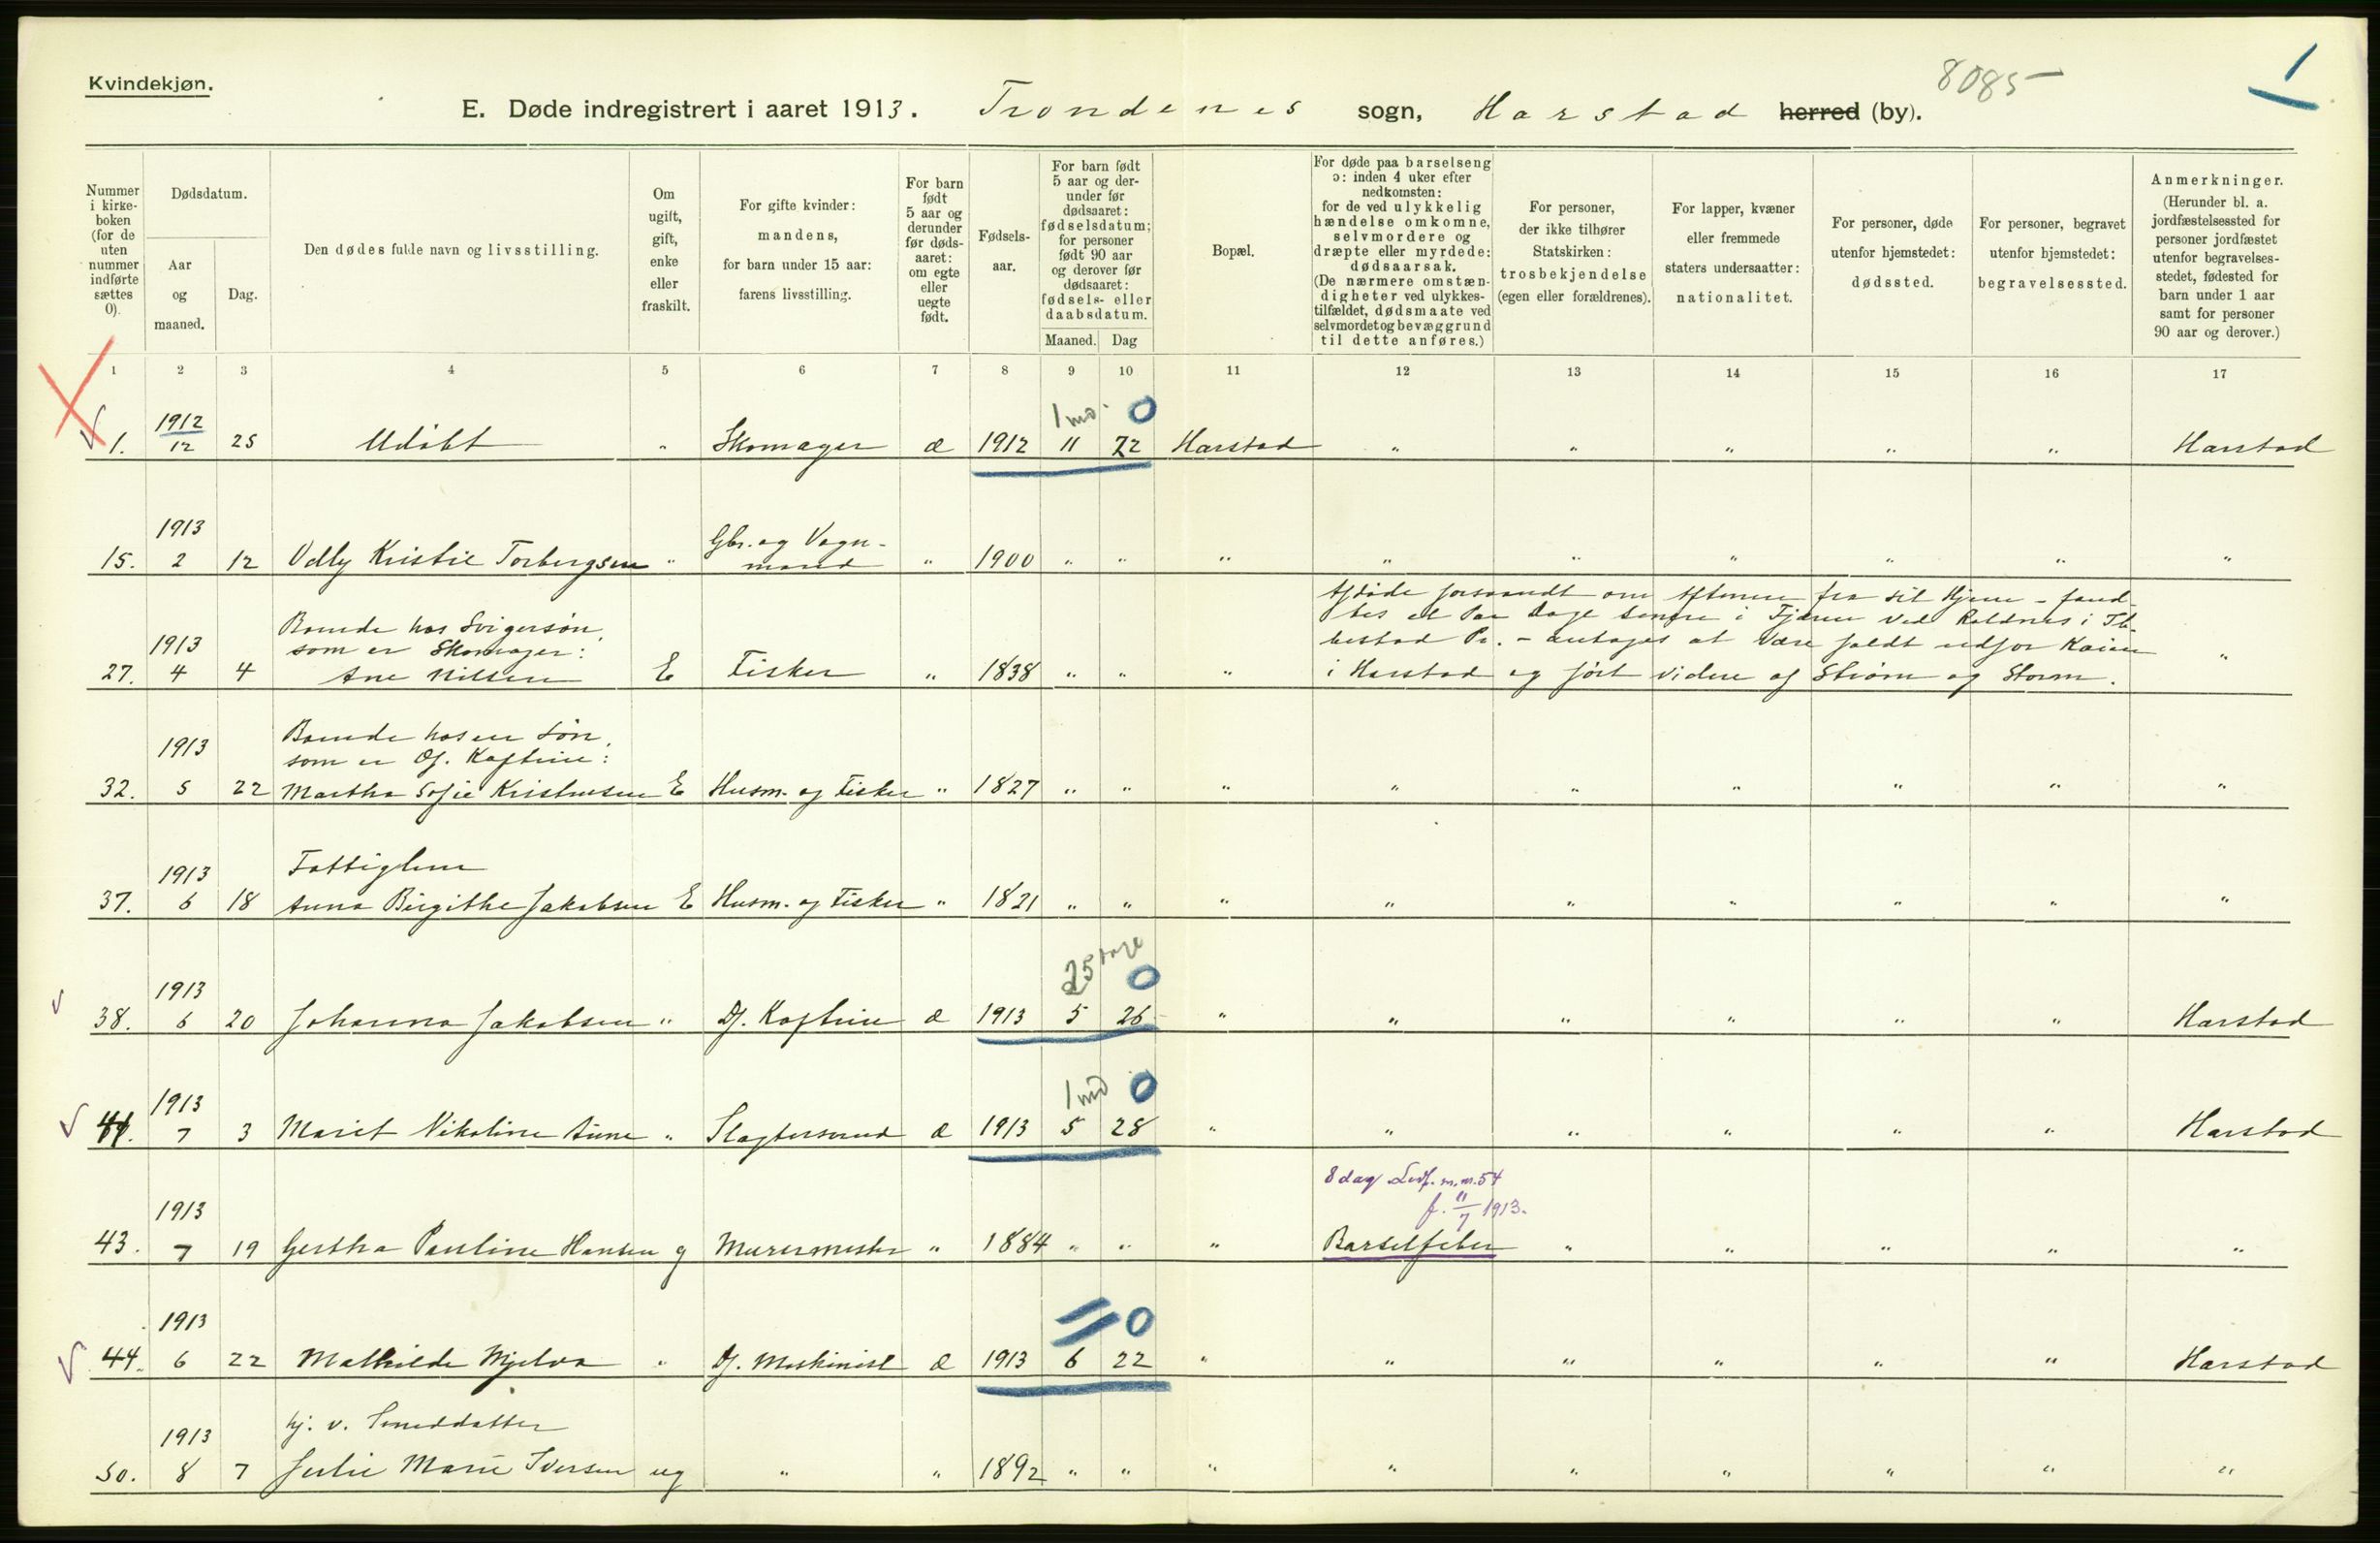 Kvindekjøn.
8085
1
E. Døde indregistrert i aaret 1913. Trondenes sogn, Harstad herred (by).
Nummer i kirkeboken (for de uten nummer indførte sættes 0).
Dødsdatum.
Aar og maaned.
Dag.
Den dødes fulde navn og livsstilling.
Om ugift, gift, enke eller fraskilt.
For gifte kvinder: mandens, for barn under 15 aar: farens livsstilling.
For barn født 5 aar og derunder før dødsaaret: om egte eller uegte født.
Fødselsaar.
For barn født 5 aar og derunder før dødsaaret: fødselsdatum; for personer født 90 aar og derover før dødsaaret: fødsels- eller daabsdatum.
Maaned. Dag
Bopæl.
For døde paa barselseng ɔ: inden 4 uker efter nedkomsten: for de ved ulykkelig hændelse omkomne, selvmordere og dræpte eller myrdede: dødsaarsak. (De nærmere omstændigheter ved ulykkestilfældet, dødsmaate ved selvmord et og bevæggrund til dette anføres.)
For personer, der ikke tilhører Statskirken: trosbekjendelse (egen eller forældrenes).
For lapper, kvæner eller fremmede staters undersaatter: nationalitet.
For personer, døde utenfor hjemstedet: dødssted.
For personer, begravet utenfor hjemstedet: begravelsessted.
Anmerkninger. (Herunder bl. a. jordfæstelsessted for personer jordfæstet utenfor begravelsesstedet, fødested for barn under 1 aar samt for personer 90 aar og derover.)
1 2 3 4 5 6 7 8 9 10 11 12 13 14 15 16 17
1912 1 md. 0
1. 12 25 Udøbt " Skomager æ 1912 11 22 Harstad " " " " " Harstad
1913 Gbr. og Vogn-
15. 2 12 Kristie Torbergsen " mand " 1900 " " " " " " " " "
Boende hos Svigersøn,
1913 som er Skomager:
27. 4 4 Ane Nilsen E Fisker " 1838 " " " "
om Aftenen fra sit Hjem - fand-
tes et Par Dage senere i Fjæren ved Rollnes i
bestad Pr. - antages at være faldt udfor Kaien
i Harstad og ført videre af Strøm og Storm.
Boende hos en Søn,
1913 som er Df. Kaptein:
32. 5 22 Martha Sofie Kristensen E Husm. og Fisker " 1827 " " " " " " " " "
1913 Fattiglem
37. 6 18 Anna Birgithe Jakobsen E Husm. og Fisker " 1821 " " " " " " " " "
1913 25 dage 0
38. 6 20 Johanna Jakobsen " Df. Kaptein æ 1913 5 26 " " " " " " Harstad
1913 1 md 0
41. 7 3 Marit Nikoline Aune " Slagtersvend æ 1913 5 28 " " " " " " Harstad
8 dag m.m. 54
1913 f. 11/7 1913.
43. 7 19 Gertha Pauline Hansen g Murermester " 1884 " " " Barselfeber " " " " "
1913 0
44. 6 22 Mathilde Mjelva " Df. Maskinist æ 1913 6 22 " " " " " " Harstad
1913 hj. v. Smeddatter
50. 8 7 Marie Iversen ug " " 1892 " " " " " " " " "